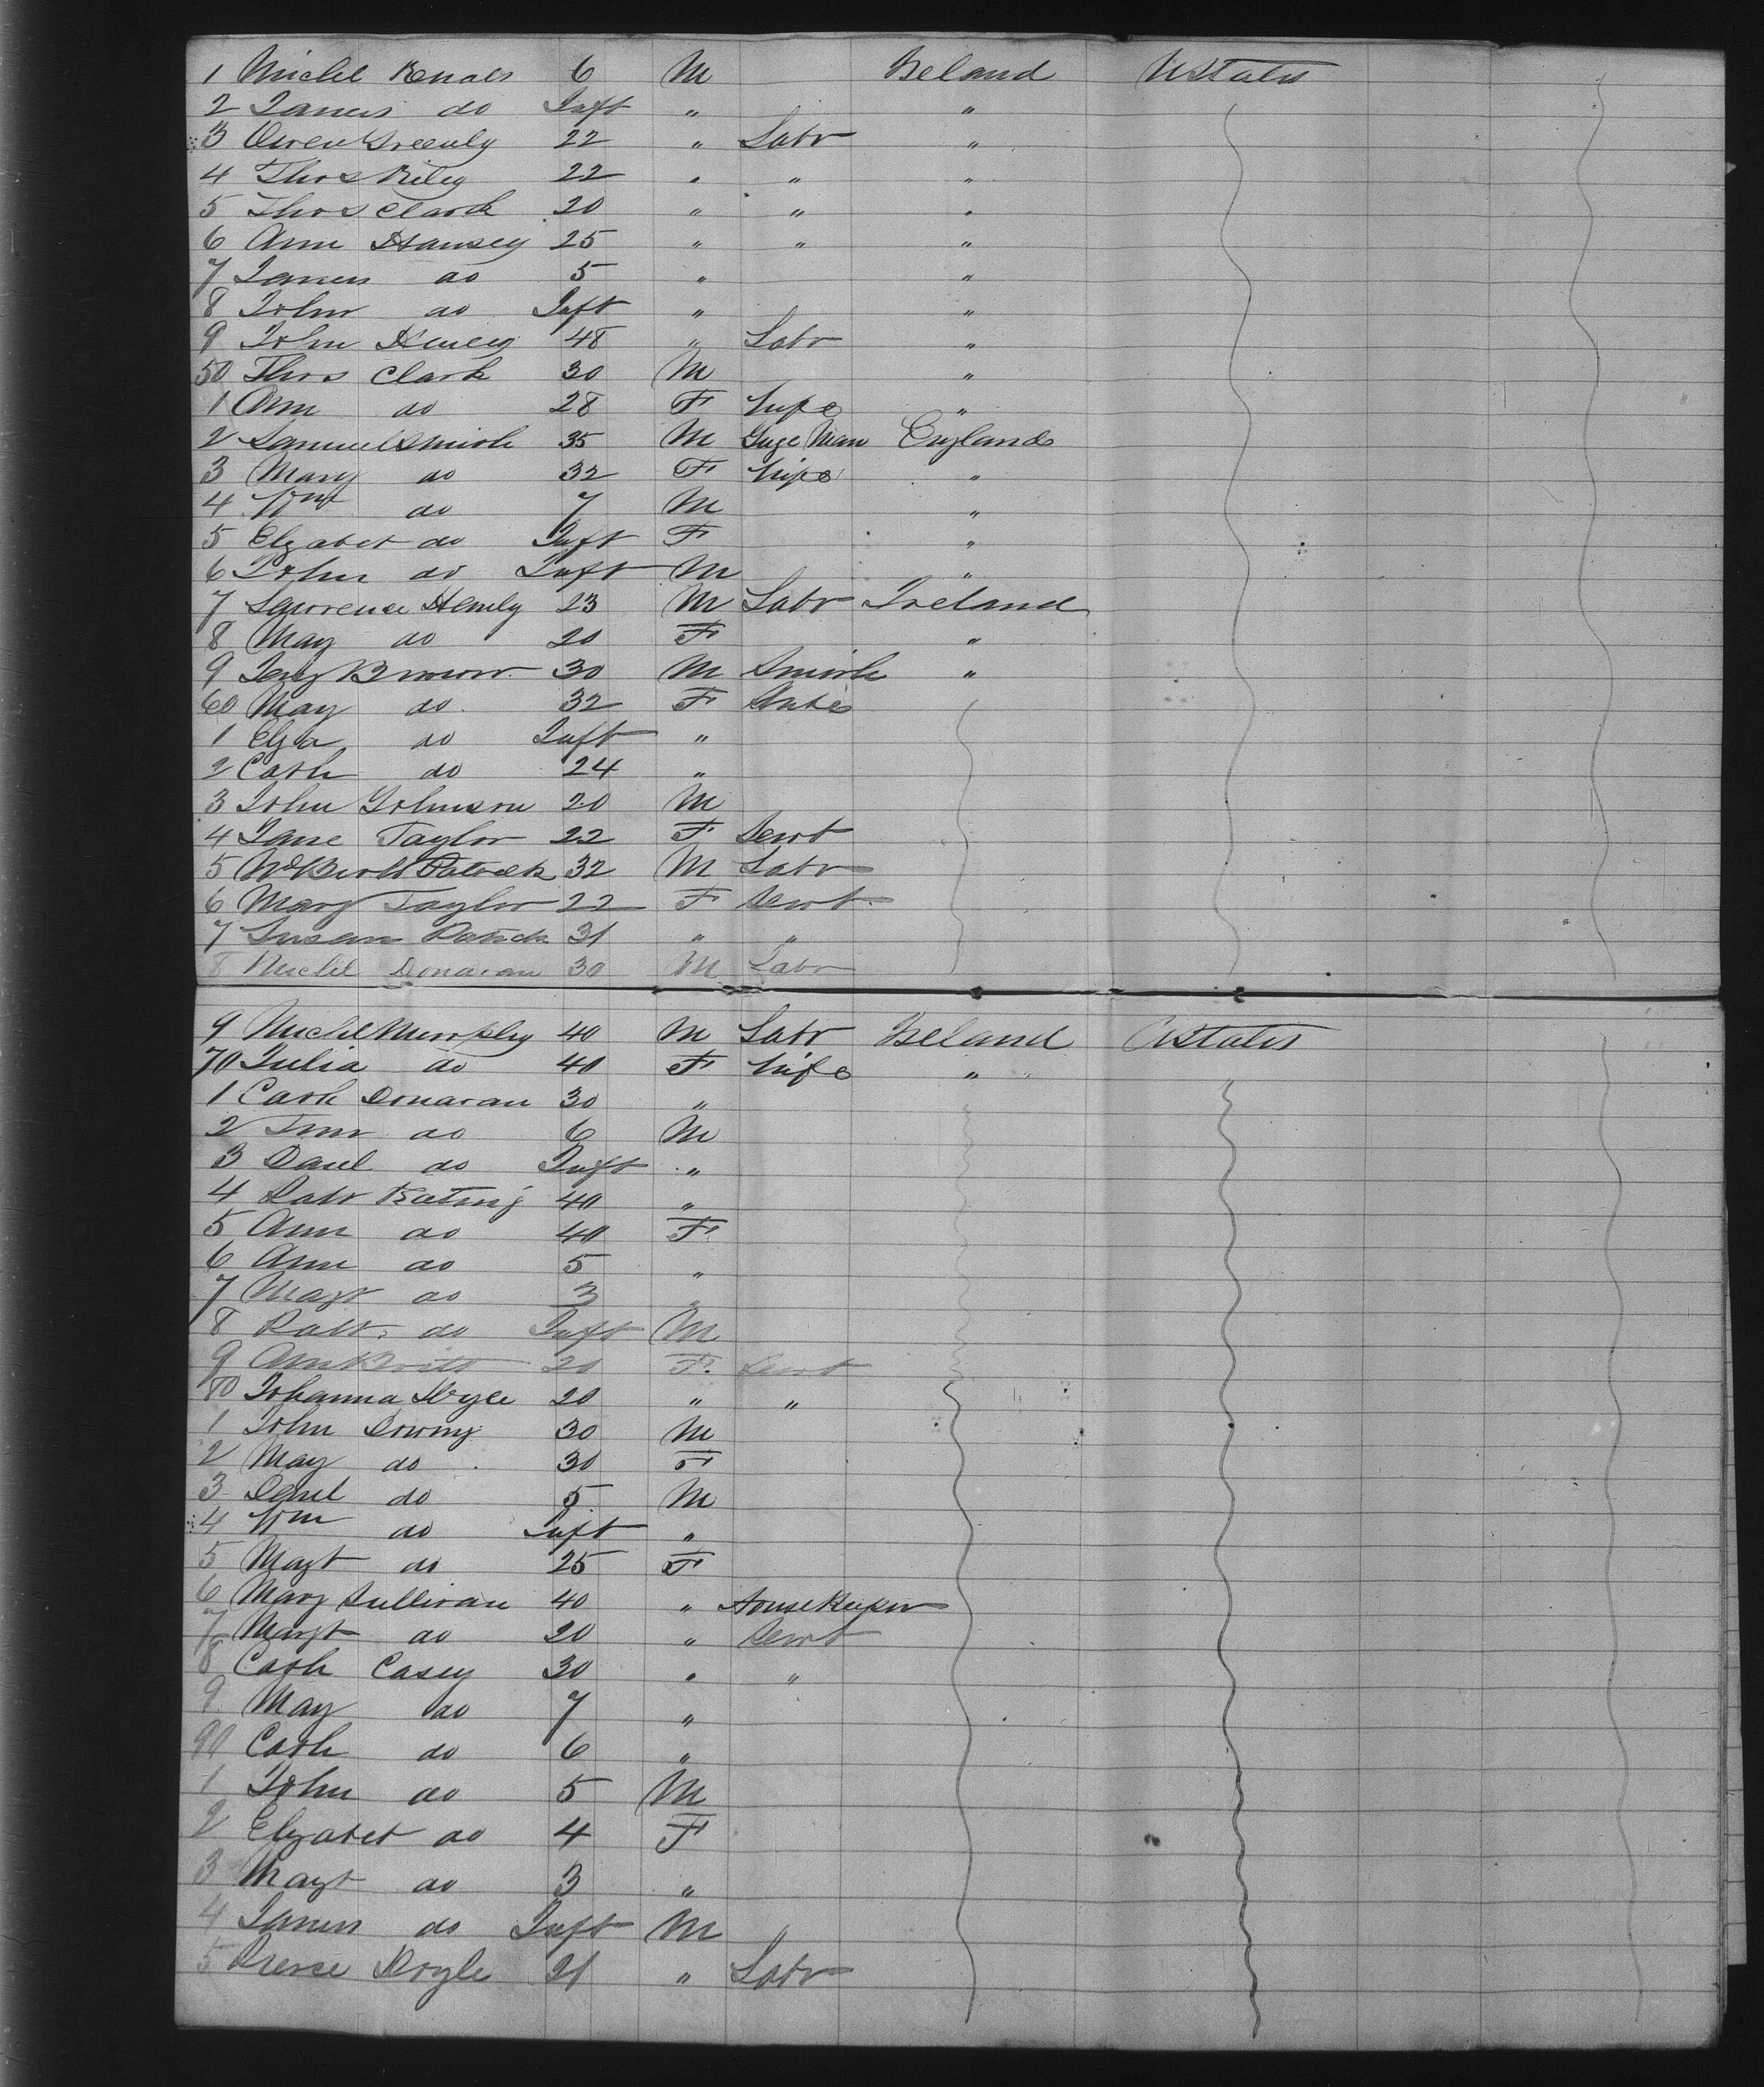 1 Michl 6 M Ireland UStates
2 James do Inft " "
3 Owen Greenly 22 " Labr "
4 Thos Riley 22 " " "
5 Thos Clark 20 " " "
6 Ann Hansey 25 " " "
7 James do 5 " "
8 John do Inft " "
9 John 48 " Labr "
50 Thos Clark 30 M "
1 Ann do 28 F Wife "
2 Samuel Smith 35 M Man England
3 Mary do 32 F Wife "
4 Wm do 7 M "
5 Elzabet do Inft F "
6 John do Inft M "
7 Lawrence Henly 23 M Labr Ireland
8 May do 20 F "
9 Brown 30 M Smith "
60 May do 32 F
1 Elza do Inft "
2 Cath do 24 "
3 John Johnson 20 M
4 Jane Taylor 22 F Servt
5 Patrick 32 M Labr
6 Mary Taylor 22 F Servt
7 Susan Patrick 31 " "
8 Michl Donavan 30 M Labr
9 Michl Murphy 40 M Labr Ireland UStates
70 Julia do 40 F Wife "
1 Cath Donavan 30 "
2 Tim do 6 M
3 Danl do Inft "
4 Keating 40 "
5 Ann do 40 F
6 Ann do 5 "
7 Magt do 3 "
8 do Inft M
9 Ann Britt 20 F Servt
80 Johanna 20 " "
1 John Downy 30 M
2 May do 30 F
3 Danl do 5 M
4 Wm do Inft "
5 Magt do 25 F
6 Mary Sullivan 40 " Housekeeper
7 Margt do 20 " Servt
8 Cath Casey 30 " "
9 May do 7 "
90 Cath do 6 "
1 John do 5 M
2 Elyzabet do 4 F
3 Magt do 3 "
4 James do Inft M
5 Pierce Doyle 21 " Labr